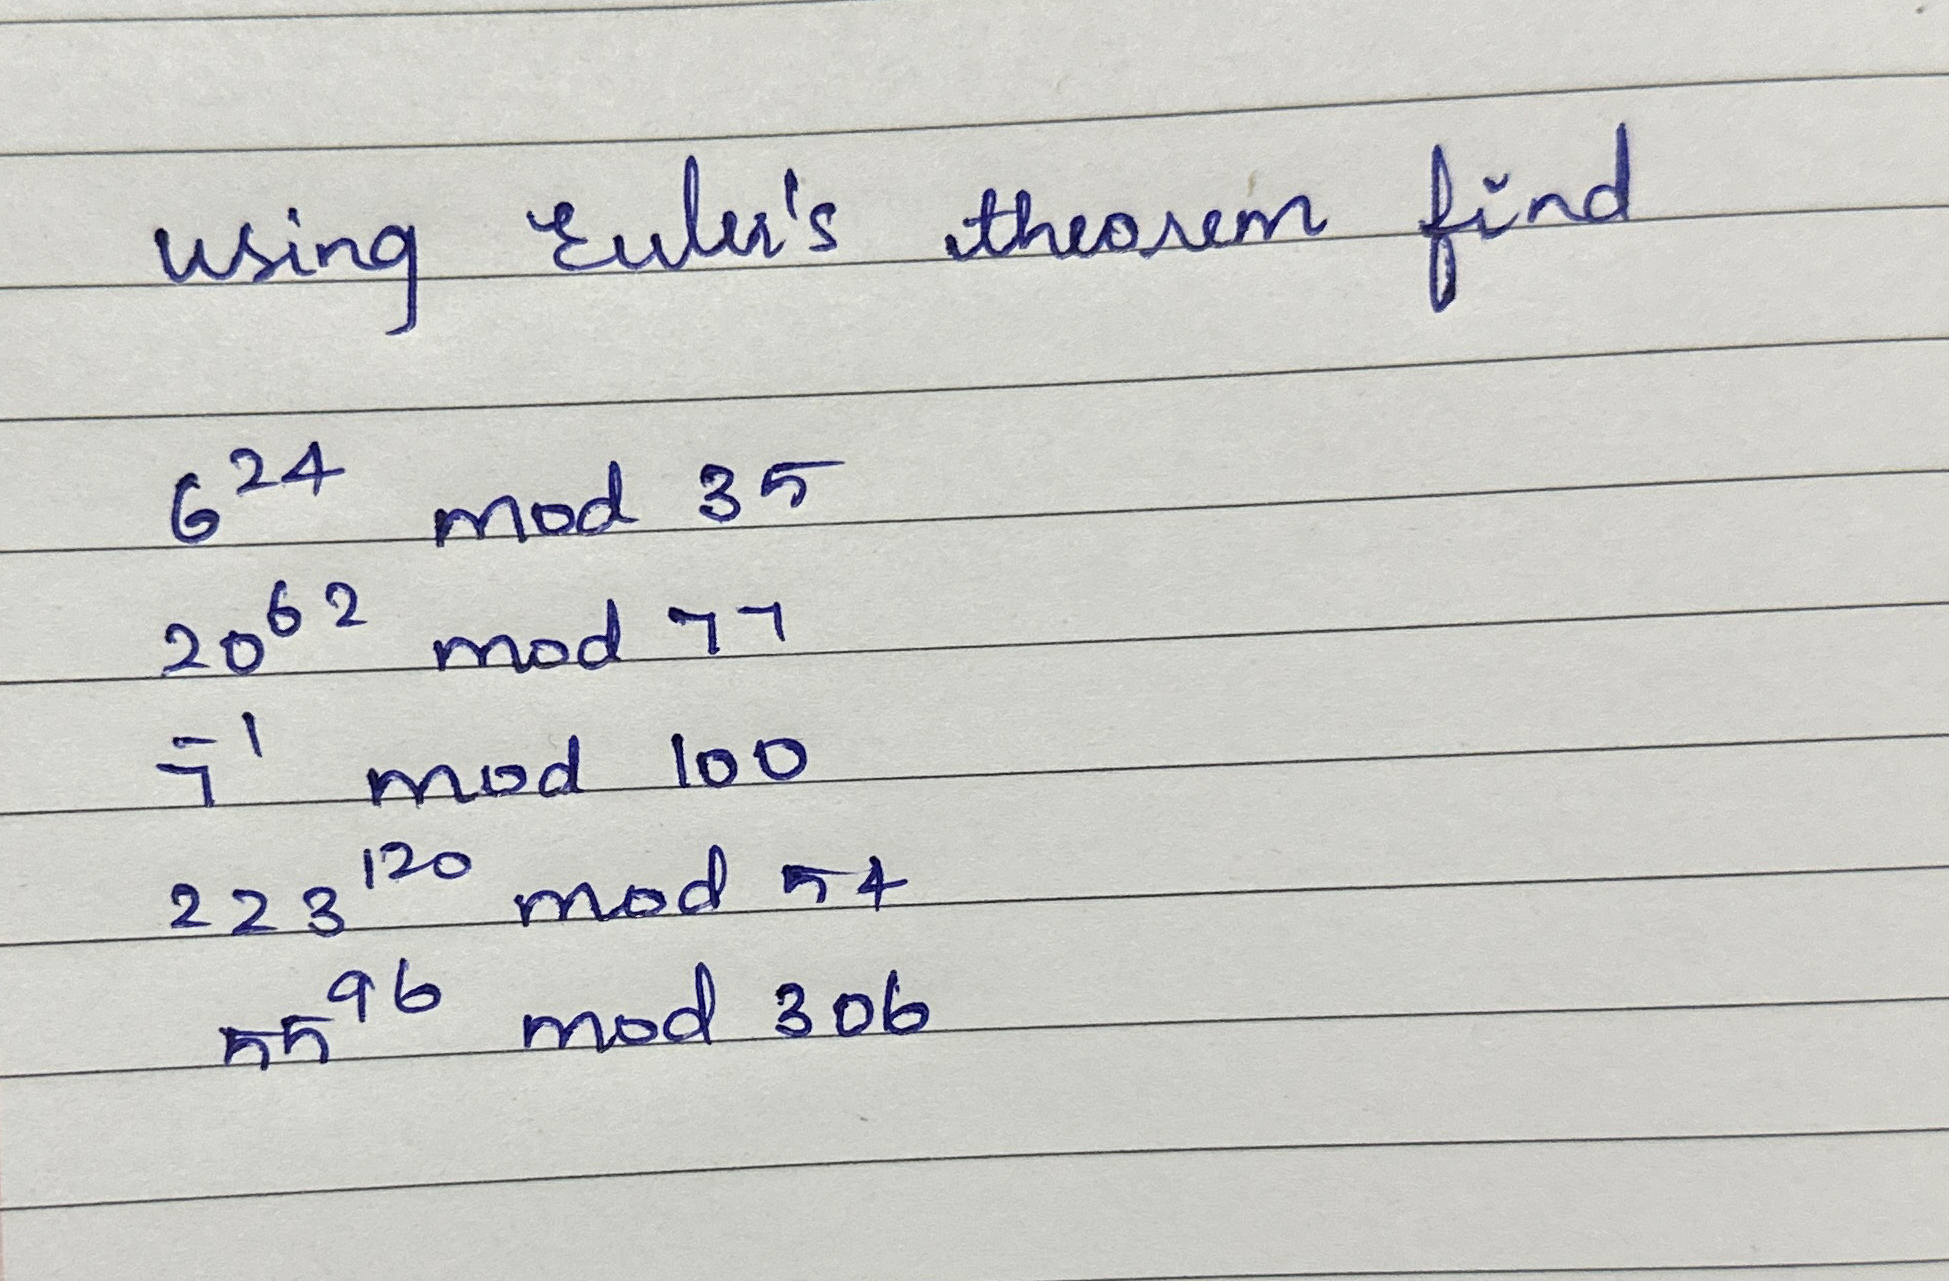 using Euler's theorem find
6²⁴ mod 35
20⁶² mod 77
7⁻¹ mod 100
223¹²⁰ mod 54
55⁹⁶ mod 306